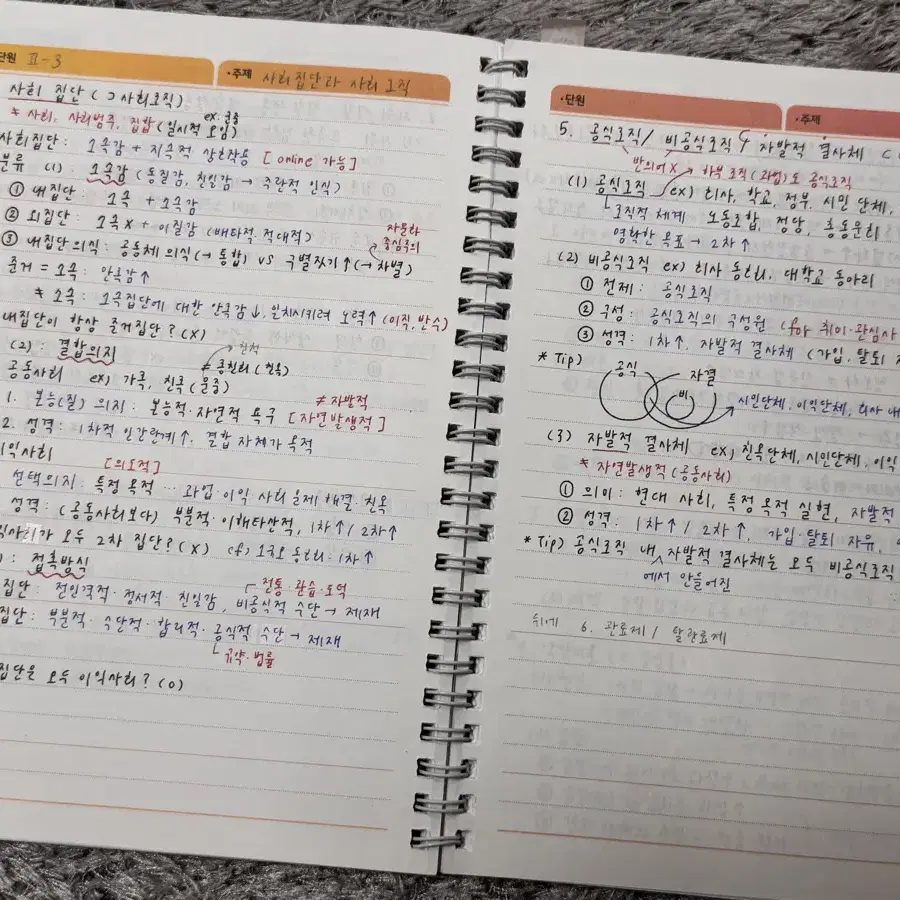 단원 Ⅱ-3
·주제 사회집단과 사회조직
사회 집단 (⊃사회조직)
ex: 군중
* 사회, 사회범주, 집합 (일시적 모임)
사회집단: 소속감 + 지속적 상호작용 [online 가능]
분류 (1) 소속감 (동질감, 친밀감 → 주관적 인식)
① 내집단: 소속 + 소속감
② 외집단: 소속X + 이질감 (배타적·적대적)
자문화
중심주의
③ 내집단의식: 공동체 의식(→ 통합) VS 구별짓기↑(→ 차별)
준거 = 소속: 만족감↑
≠ 소속: 소속집단에 대한 만족감↓, 일치시키려 노력↑ (이직, 반수)
내집단이 항상 준거집단? (X)
(2): 결합의지
공동사회 ex) 가족, 친족 (문중)
≠ 종친회
≠ 자발적
1. 본능(질) 의지: 본능적·자연적 욕구 [자연발생적]
2. 성격: 1차적 인간관계↑, 결합 자체가 목적
이익사회
[의도적]
선택의지·특정 목적 … 과업·이익 사회 문제 해결·친목
성격: (공동사회보다) 부분적·이해타산적, 1차↑/ 2차↑
익사회가 모두 2차 집단? (X) cf) 소규모 동호회: 1차↑
): 접촉방식
전통·관습·도덕
집단: 전인격적·정서적·친밀감, 비공식적 수단 → 제재
집단: 부분적·수단적·합리적·공식적 수단 → 제재
규약·법률
집단은 모두 이익사회? (O)
·단원
·주제
5. 공식조직/ 비공식조직 / 자발적 결사체 C
반의어 X
하부 조직 (과별)도 공식조직
(1) 공식조직 ex) 회사, 학교, 정부, 시민 단체,
조직적 체계 노동조합, 정당, 총동문회
명확한 목표 → 2차↑
(2) 비공식조직 ex) 회사 동호회, 대학교 동아리
① 전제: 공식조직
② 구성: 공식조직의 구성원 (for 취미·관심사
③ 성격: 1차↑, 자발적 결사체 (가입, 탈퇴
* Tip)
공식
자결
비
시민단체, 이익단체, 회사 내
(3) 자발적 결사체 ex) 친목단체, 시민단체, 이익
≠ 자연발생적 (공동사회)
① 의미: 현대 사회, 특정 목적 실현, 자발적
② 성격: 1차↑/ 2차↑, 가입·탈퇴 자유,
* Tip) 공식조직 내 자발적 결사체는 모두 비공식조직
에서 만들어진
뒤에 6. 관료제 / 탈관료제